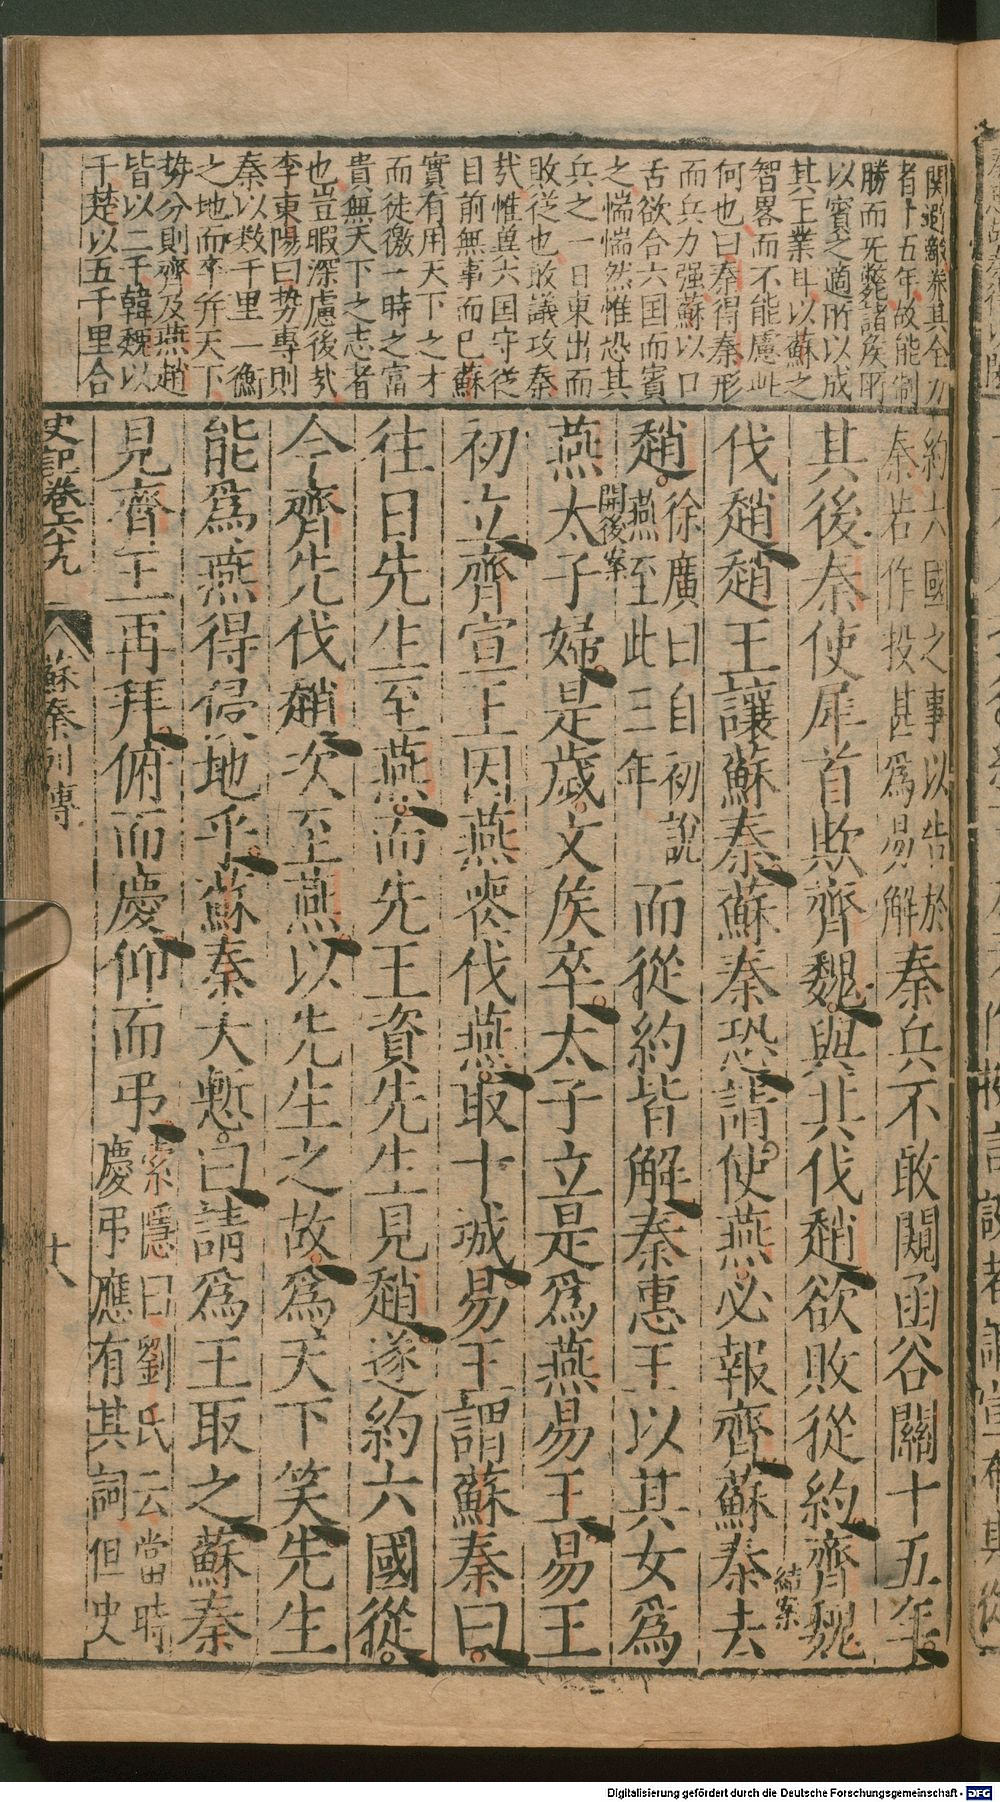 關迥敵卷其全力
者十五年故能制
勝而旡斃諸矦所
以實之適所以成
其王業耳以蘇之
智畧而不能慮此
何也曰秦得秦形
而兵力强蘇以口
舌欲合六国而賓
之惴惴然惟恐其
兵之一日東出而
敗従也敢議攻秦
㢤惟兾六国守従
目前無事而已蘇
實有用天下之才
而徒徼一時之富
貴無天下之志者
也豈暇深慮後㢤
李東陽曰势專則
秦以数千里一衡
之地而卒斚天下
势分則齊及燕趙
皆以二千韓魏以
千楚以五千里合
約六國之事以告於
秦若作投甚爲易解
秦兵不敢闚函谷關十五年
其後秦使犀首欺齊魏與共伐趙欲敗從約齊魏
伐趙趙王讓蘇秦蘇秦恐請使燕必報齊蘇秦去
結案
趙
徐廣曰自初說
燕至此三年
而從約皆解秦惠王以其女爲
開後案
燕太子婦是歲文矦卒太子立是爲燕易王易王
初立齊宣王因燕喪伐燕取十城易王謂蘇秦曰
往日先生至燕而先王資先生見趙遂約六國從
今齊先伐趙次至燕以先生之故爲天下笑先生
能爲燕得侵地乎蘇秦大慙曰請爲王取之蘇秦
見齊王再拜俯而慶仰而弔
索隱曰劉氏云當時
慶弔應有其詞但史
史記卷六十九
蘇秦列傳
廿八
Digitalisierung gefördert durch die Deutsche Forschungsgemeinschaft - DFG